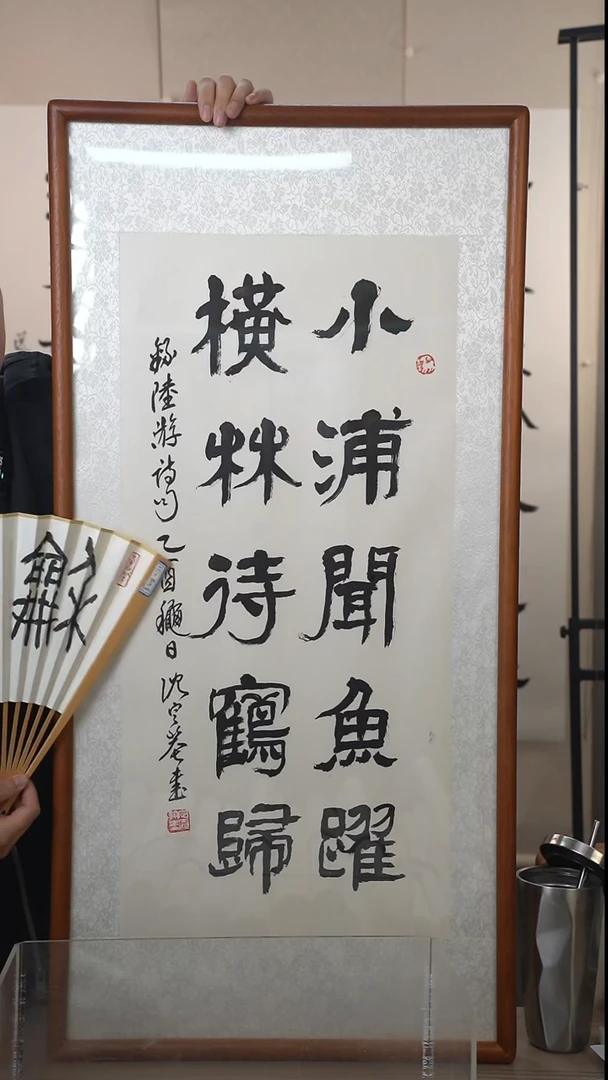 小浦聞魚躍
橫林待鶴歸
錄陸游詩句 乙酉穐日 沈定菴書